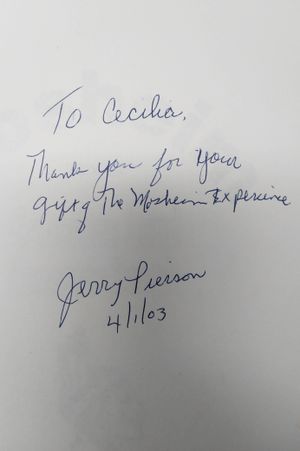 To Cecilia,
Thank you for your
gift of The Mosheim Experience
Jerry Pierson
4/1/03